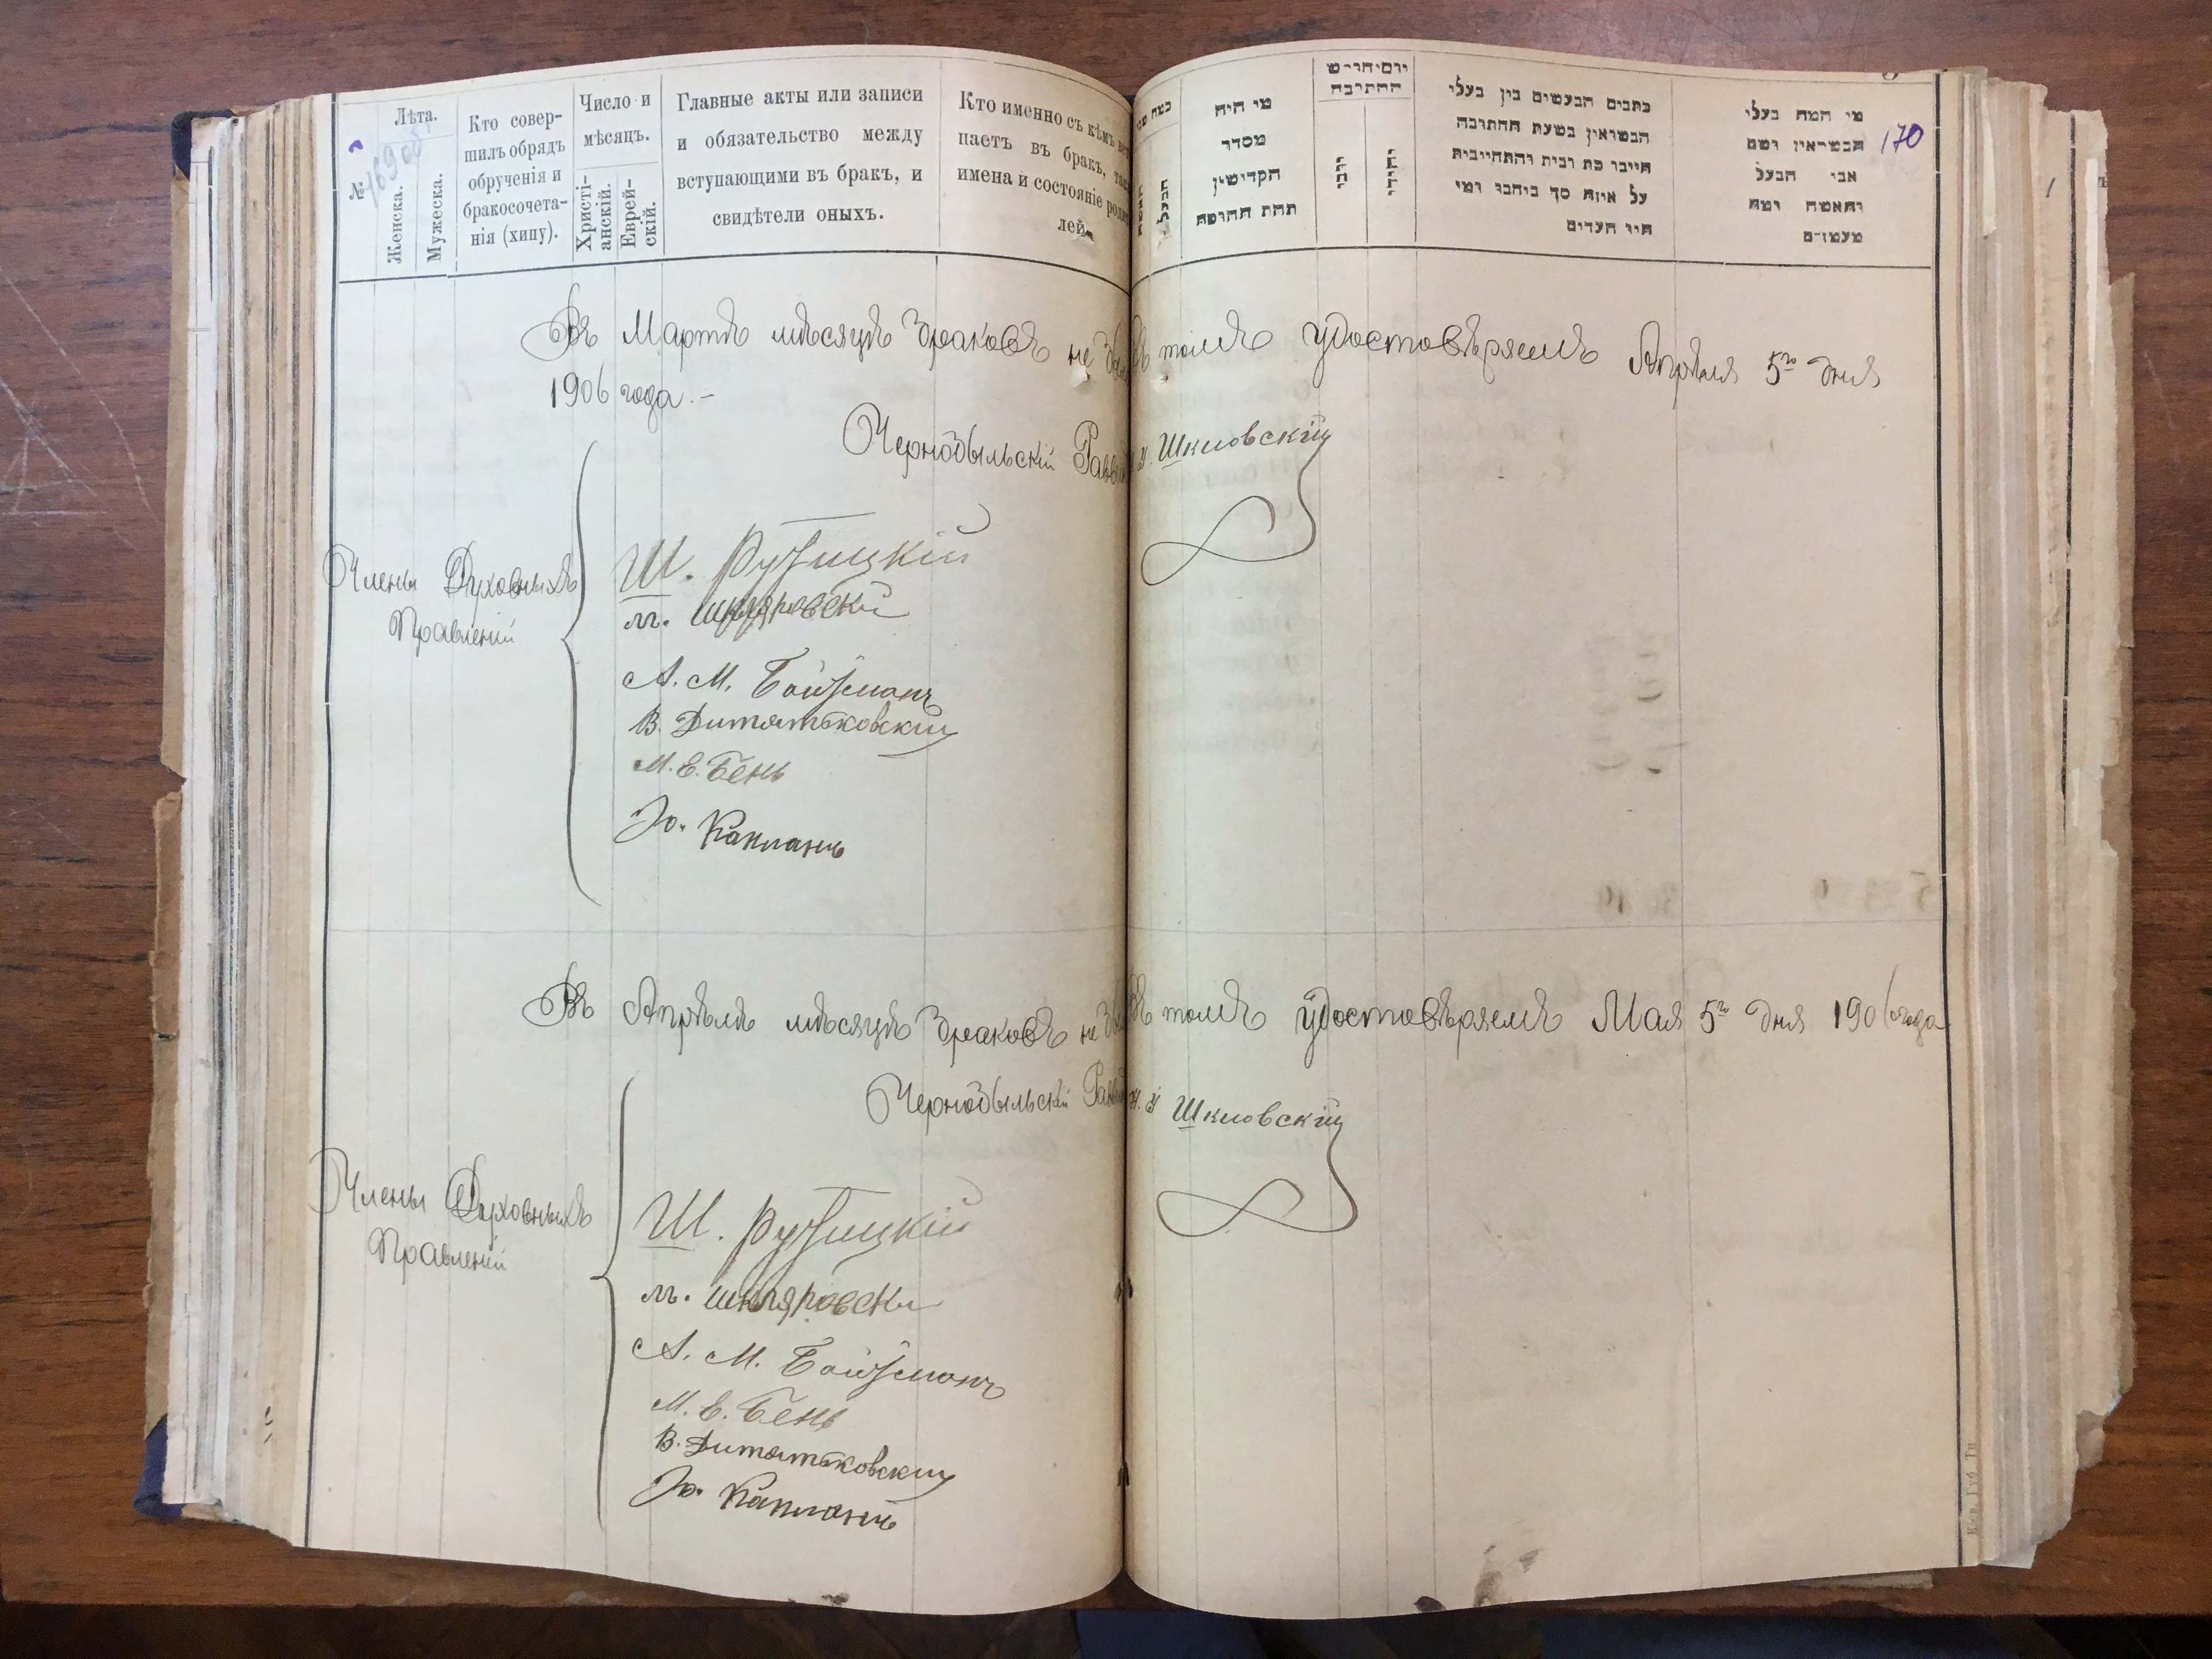 №
Лѣта.
Женска.
Мужеска.
Кто совер-
шилъ обрядъ
обрученія и
бракосочета-
нія (хипу).
Число и
мѣсяцъ.
Христі-
анскій.
Еврей-
скій.
Главные акты или записи
и обязательство между
вступающими въ бракъ, и
свидѣтели оныхъ.
Кто именно съ кѣмъ
паетъ въ бракъ,
имена и состояніе
лей.
מי היה
מסדר
הקדישין
תחת החופה
יום חודש
החתונה
נוצרי
יהודי
כתבים הנעשים בין בעלי
הנשואין בשעת החתונה
על איזה סך
העדים
מי המה בעלי
הנשואין ושם
אבי הבעל
והאשה ומה
מעמדם
170
Въ Мартѣ мѣсяцѣ браковъ не томъ удостовѣряемъ Апрѣля 5го дня
1906 года.-
Чернобыльскій Шкловскій
Члены Духовныхъ
Правленій
Ш. Рузицкій
М. Шкляровски
А. М. Бойзманъ
В. Дитятьковскій
М. Е. Бень
Ю. Капланъ
Въ Апрѣлѣ мѣсяцѣ браковъ не томъ удостовѣряемъ Мая 5го дня 1906 года
Чернобыльскій Шкловскій
Члены Духовныхъ
Правленій
Ш. Рузицкій
М. Шкляровски
А. М. Бойзманъ
М. Е. Бень
В. Дитятьковскій
Ю. Капланъ